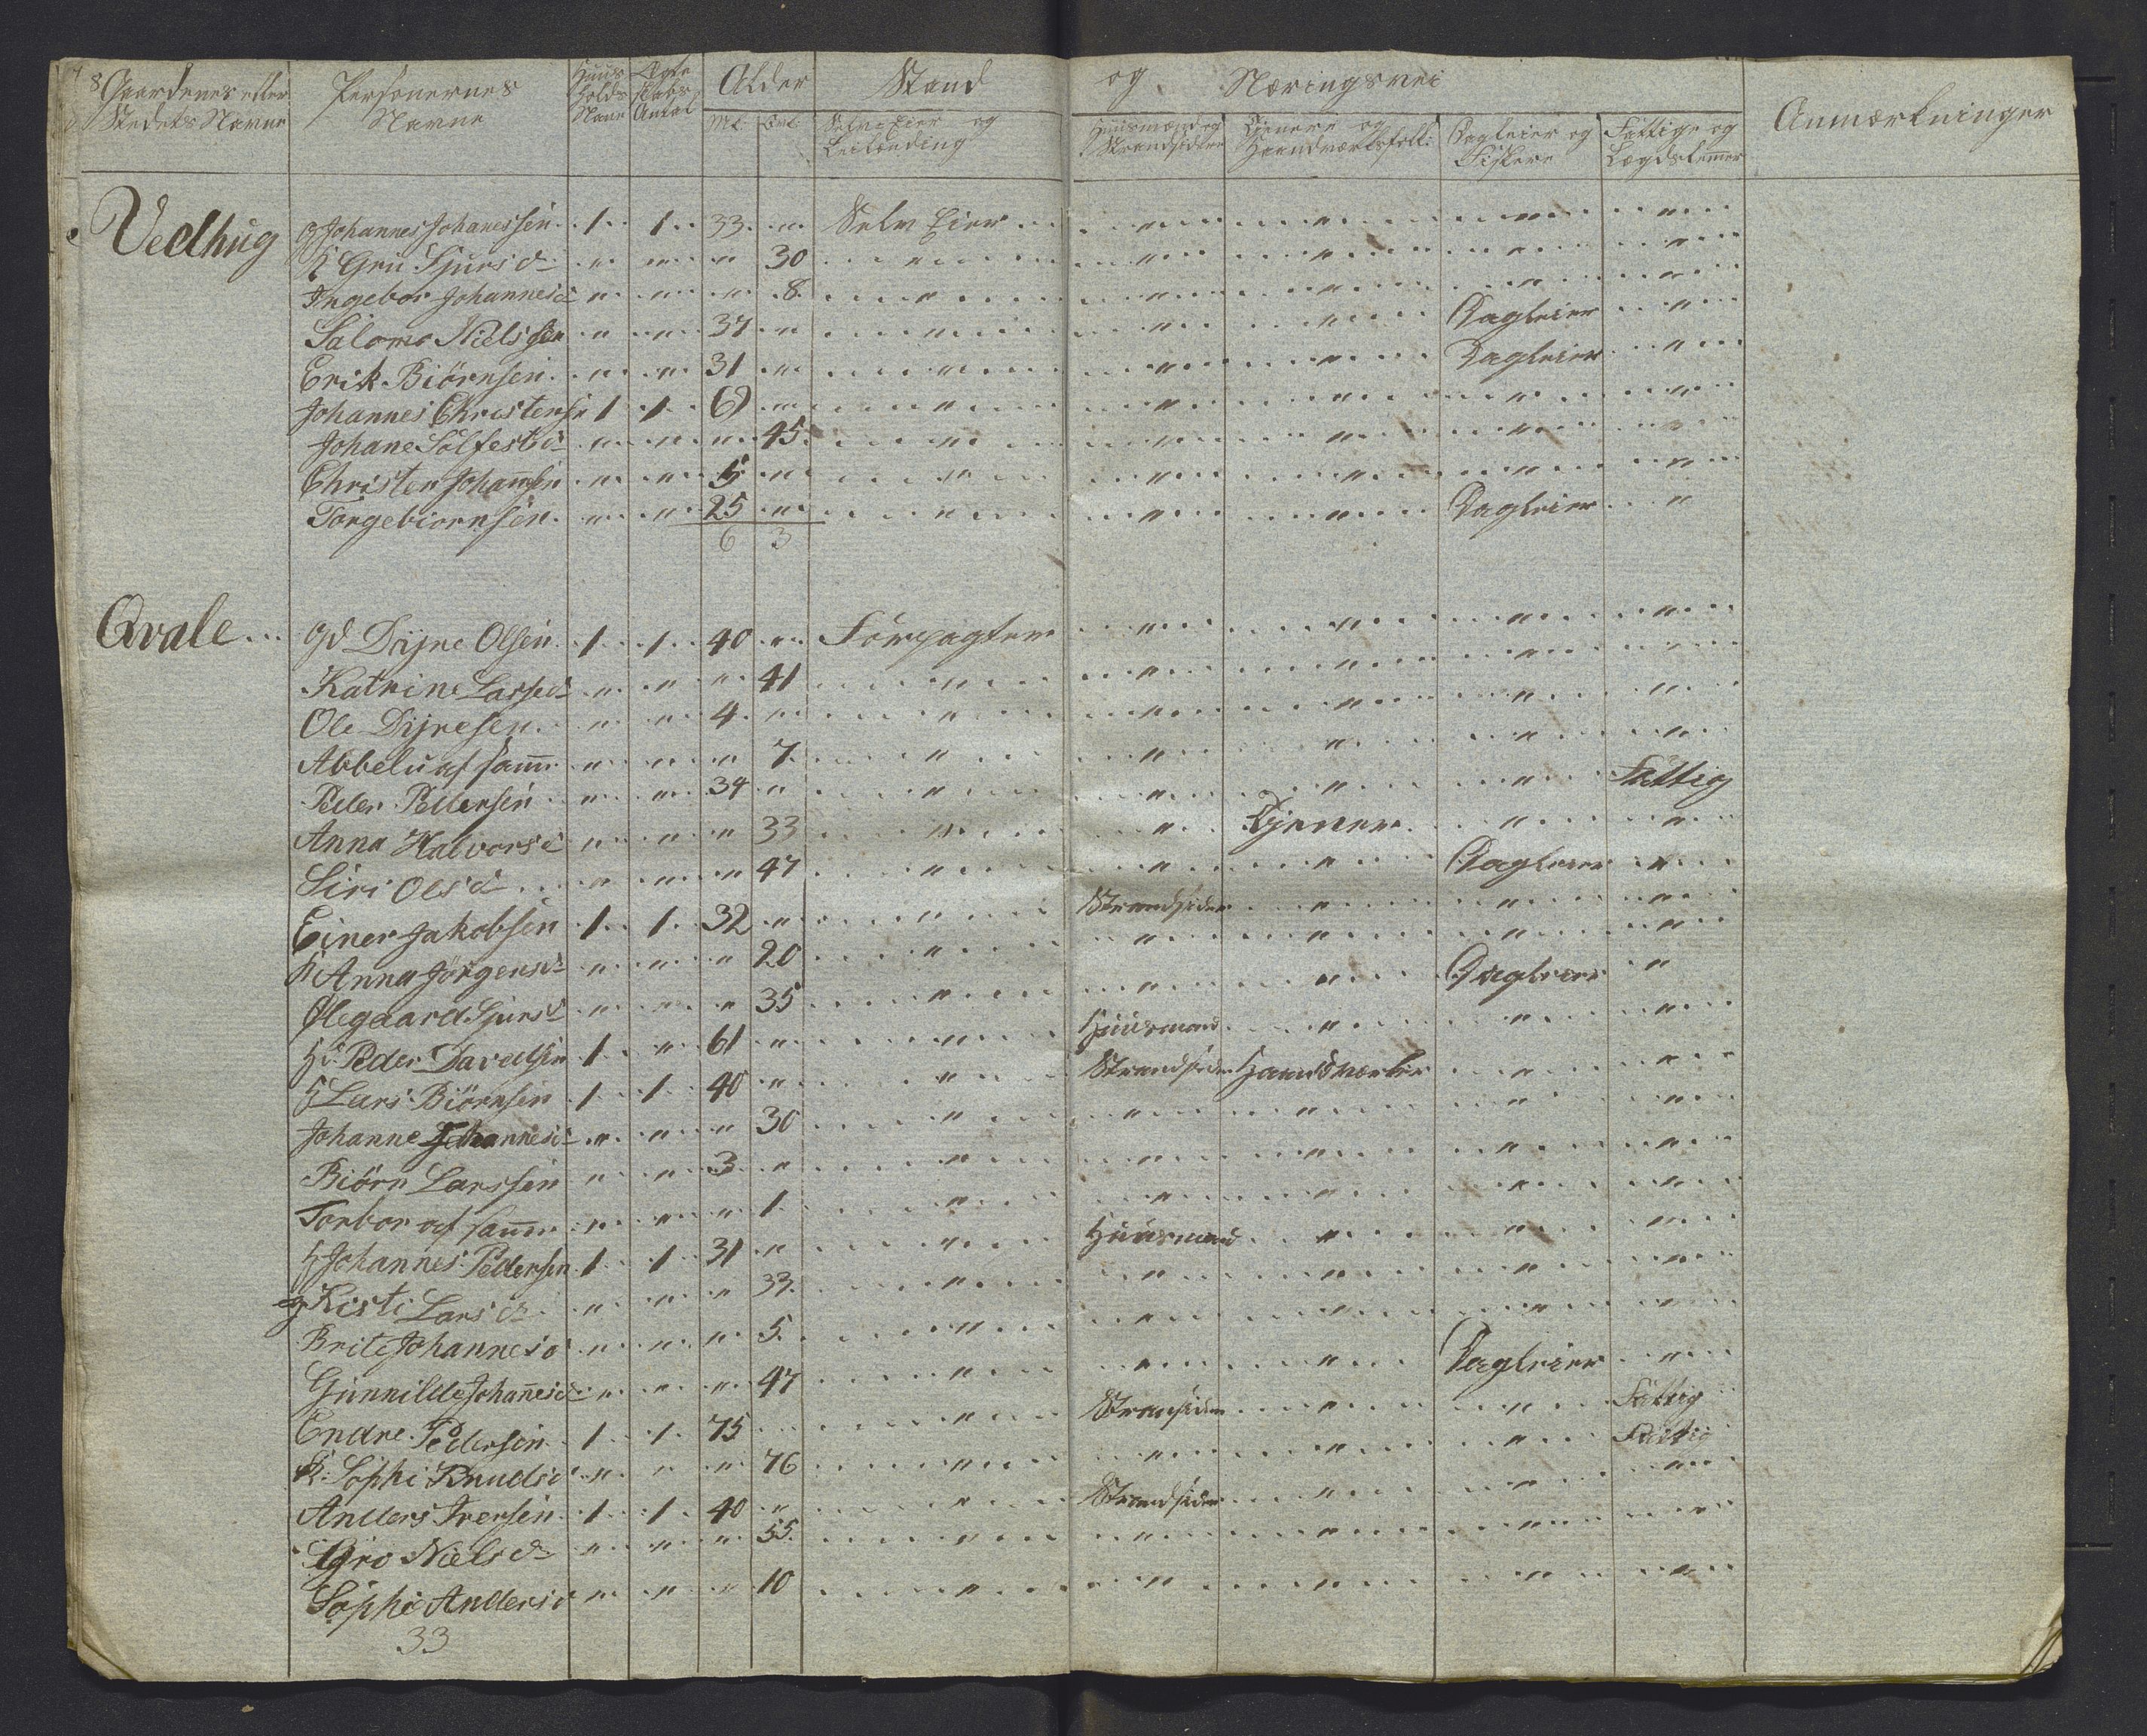 8 Gaardenes eller Stedets Navne | Personernes Navne | Huus holds Navne | Ægte skabs Antal | Alder | Stand og Næringsvei | Anmærkninger
Mk: | Qvk: | Selv Eier og Leilænding | Huusmænd og Strandsidere | Tjenere og Haandværksfolk: | Dagleier og Fiskere | Fattige og Lægdslemer
Vedhug | G Johannes Johanessen | 1 | 1 | 33 | " | Selv Eier | " | " | " | "
K Gru Sjurs d | " | " | " | 30 | " | " | " | " | "
Ingebor Johannesd | " | " | " | 8 | " | " | " | " | "
Salomo Nielssen | " | " | 37 | " | " | " | " | Dagleier | "
Erik Biörnsen | " | " | 31 | " | " | " | " | Dagleier | "
Johannes Christensn | 1 | 1 | 69 | " | " | " | " | " | "
Johane Sölfestd | " | " | " | 45 | " | " | " | " | "
Christen Johannsen | " | " | 5 | " | " | " | " | " | "
Torgebiornsen | " | " | 25 | " | " | " | " | Dagleier | "
6 3
Qvale | Gd Dyre Olsen | 1 | 1 | 40 | " | Forpagter | " | " | " | "
Katrine Larsed | " | " | " | 41 | " | " | " | " | "
Ole Dyresen | " | " | 4 | " | " | " | " | " | "
Abbelu af samm | " | " | " | 7 | " | " | " | " | "
Peder Pedersen | " | " | 34 | " | " | " | " | " | Fattig
Anna Halvorsd | " | " | " | 33 | " | " | Tjener | " | "
Siri Olsd | " | " | " | 47 | " | " | " | Dagleier | "
Einer Jakobsen | 1 | 1 | 32 | " | " | Strandsider | " | " | "
K Anna Jörgensd | " | " | " | 20 | " | " | " | " | "
Ølegaard Sjursd | " | " | " | 35 | " | " | " | Dagleier | "
Hd Peder Davedsen | 1 | " | 61 | " | " | Huusmand | " | " | "
H Lars Biörnsen | 1 | 1 | 40 | " | " | Strandsider | Handværker | " | "
Johanne Johannesd | " | " | " | 30 | " | " | " | " | "
Biörn Larssen | " | " | 3 | " | " | " | " | " | "
Torbor af samm | " | " | " | 1 | " | " | " | " | "
H Johannes Pedersen | 1 | 1 | 31 | " | " | Huusmand | " | " | "
Kisti Lars d | " | " | " | 33 | " | " | " | " | "
Brite Johannesd | " | " | " | 5 | " | " | " | " | "
Gunnilde Johanesd | " | " | " | 47 | " | " | " | Dagleier | "
Endre Pedersen | 1 | 1 | 75 | " | Stransider | " | " | Fattig
K: Sophi Knudsd | " | " | " | 76 | " | " | " | " | Fattig
Anders Iversen | 1 | 1 | 40 | " | " | Strandsider | " | " | "
Gro Nielsd | " | " | " | 55 | " | " | " | " | "
Sophi Andersd | " | " | " | 10 | " | " | " | " | "
33